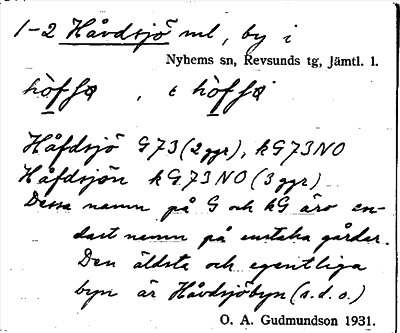 1-2 Håvdsjö ml, by i
Nyhems sn, Revsunds tg, Jämtl. l.
Håfdsjö G73 (2 ggr), kG73NO
Håfdsjön kG73NO (3 ggr)
Dessa namn på G och kG äro en-
dast namn på enstaka gårdar.
Den äldsta och egentliga
byn är Håvdsjöbyn (s.d.o.)
O. A. Gudmundson 1931.